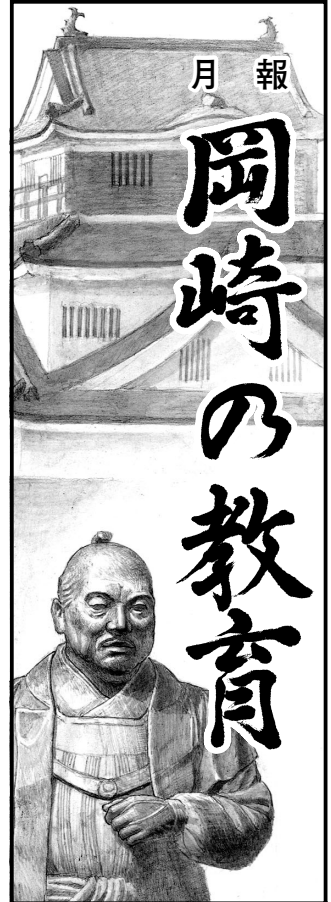 月報
岡崎の教育